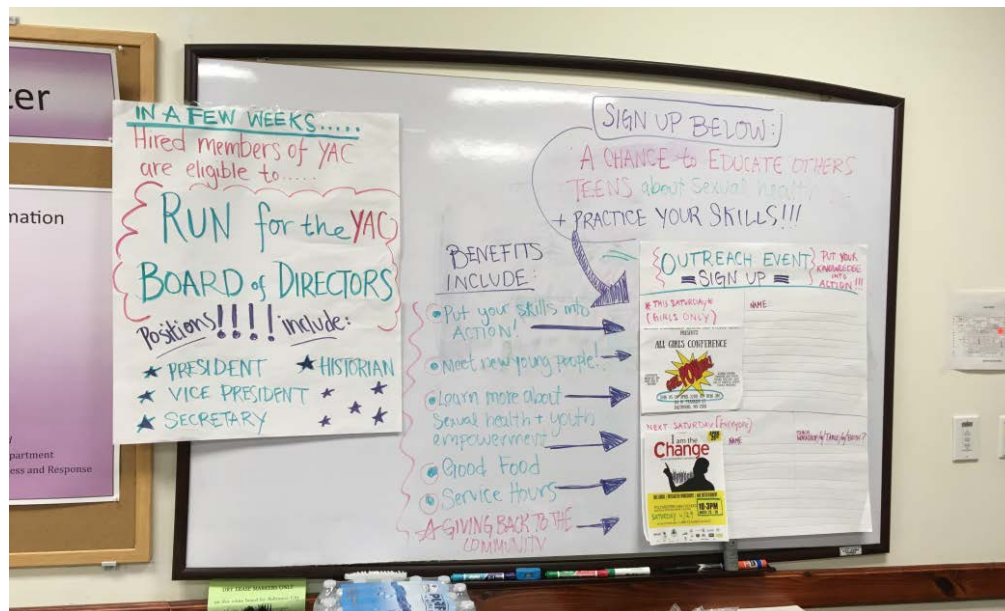 ter
rmation
partment
ess and Response
IN A FEW WEEKS.....
Hired members of YAC
are eligible to.....
RUN for the YAC
BOARD of DIRECTORS
Positions!!!! include:
★ PRESIDENT
★ HISTORIAN
★ VICE PRESIDENT
★ SECRETARY
SIGN UP BELOW:
A CHANCE to EDUCATE OTHERS
TEENS about sexual health
+ PRACTICE YOUR SKILLS!!!
BENEFITS
INCLUDE:
Put your skills into
ACTION!
Meet new young people!!
Learn more about
Sexual health + youth
empowerment
Good Food
Service Hours
☆ GIVING BACK TO THE
COMMUNITY
OUTREACH EVENT
SIGN UP
PUT YOUR
KNOWLEDGE
INTO
ACTION!!!
*THIS SATURDAY*
(GIRLS ONLY)
NAME:
PRESENTS
ALL GIRLS CONFERENCE
NEXT SATURDAY (Everyone)
NAME
I am the
Change
10-3PM
SATURDAY
DRY ERASE MARKERS ONLY